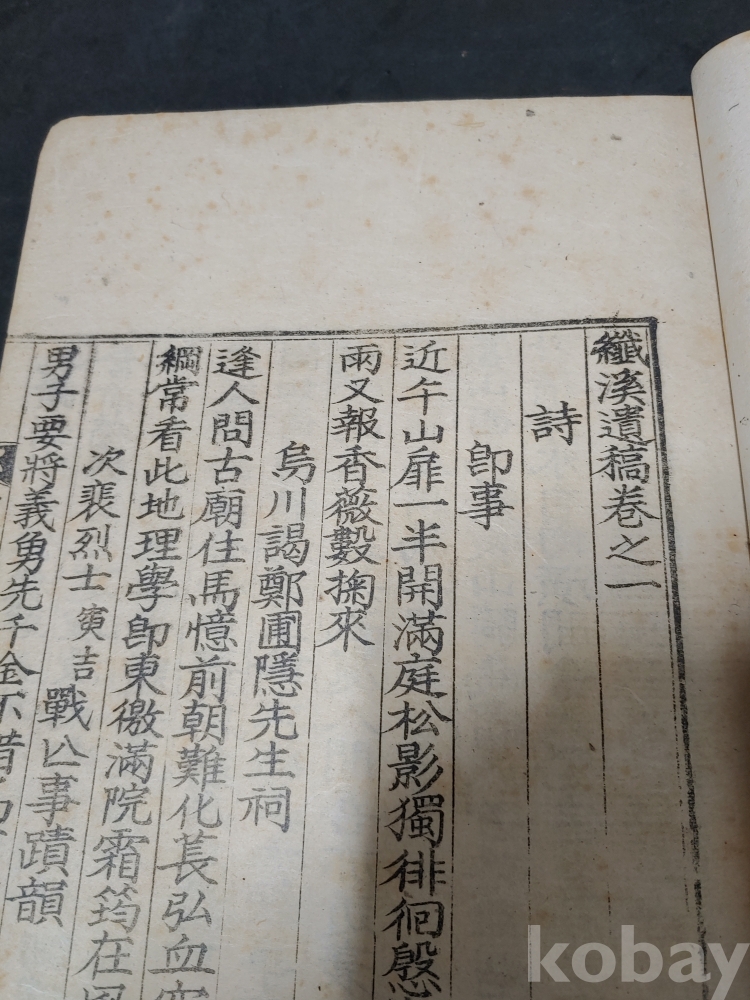 纖溪遺稿卷之一
詩
卽事
近午山扉一半開滿庭松影獨徘徊慇
雨又報香薇數掬來
烏川謁鄭圃隱先生祠
逢人問古廟住馬憶前朝難化萇弘血
綱常看此地理學卽東徼滿院霜筠在
次裴烈士寅吉戰亾事蹟韻
男子要將義勇先千金不惜
kobay